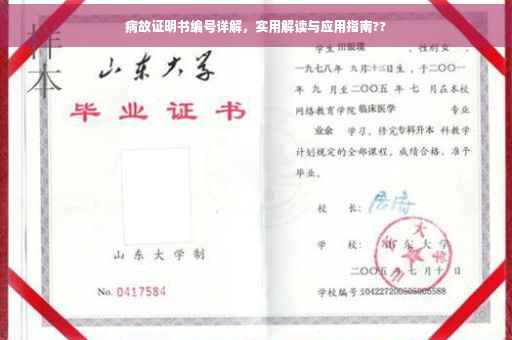 病故证明书编号详解，实用解读与应用指南??
样本
山东大学
毕业证书
山东大学制
No. 0417584
学生 性别女，
一九七八年 九月十三日生，于二〇〇一
年 九 月至二〇〇五 年 七 月在本校
网络教育学院临床医学 专业
业余 学习，修完专科升本 科教学
计划规定的全部课程，成绩合格，准予
毕业。
校 长：
学 校： 山东大学
二〇〇五 年 七 月 十 日
学校编号：104227200505005588